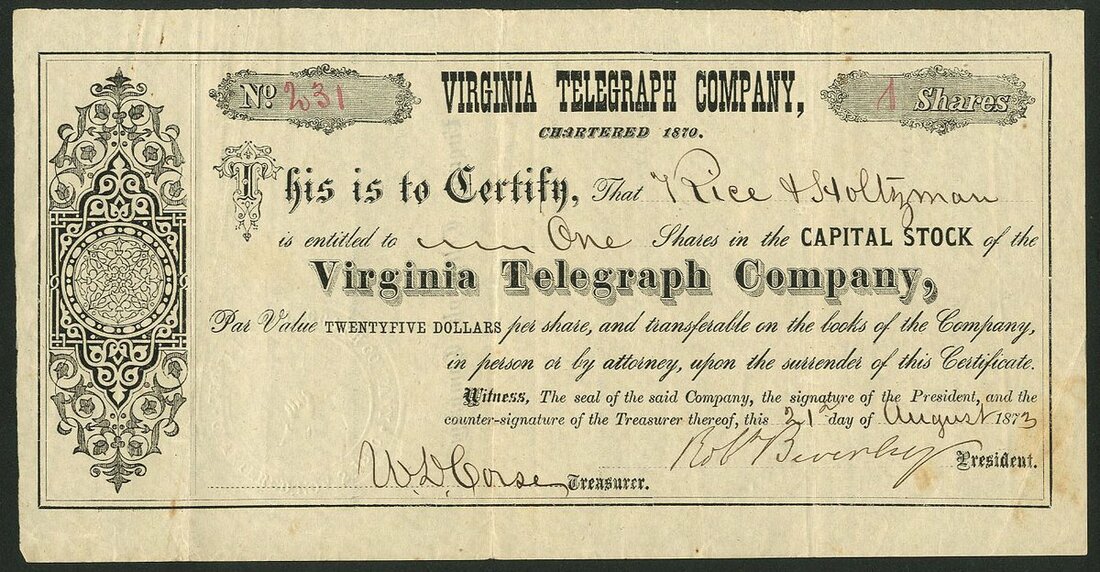 No 231 VIRGINIA TELEGRAPH COMPANY, 1 Shares
CHARTERED 1870.
This is to Certify, That Rice & Holtzman
is entitled to One Shares in the CAPITAL STOCK of the
Virginia Telegraph Company,
Par Value TWENTYFIVE DOLLARS per share, and transferable on the books of the Company,
in person or by attorney, upon the surrender of this Certificate.
Witness, The seal of the said Company, the signature of the President, and the
counter-signature of the Treasurer thereof, this 21st day of August 1873
Robt Beverley President.
W.D. Corse Treasurer.